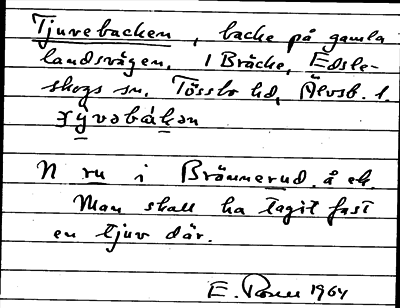 Tjuvebacken, backe på gamla
landsvägen. I Bräcke, Edsle-
skogs sn. Tössbo hd, Älvsb. l.
N ru i Brännerud å ek.
Man skall ha tagit fast
en tjuv där.
E. 1964